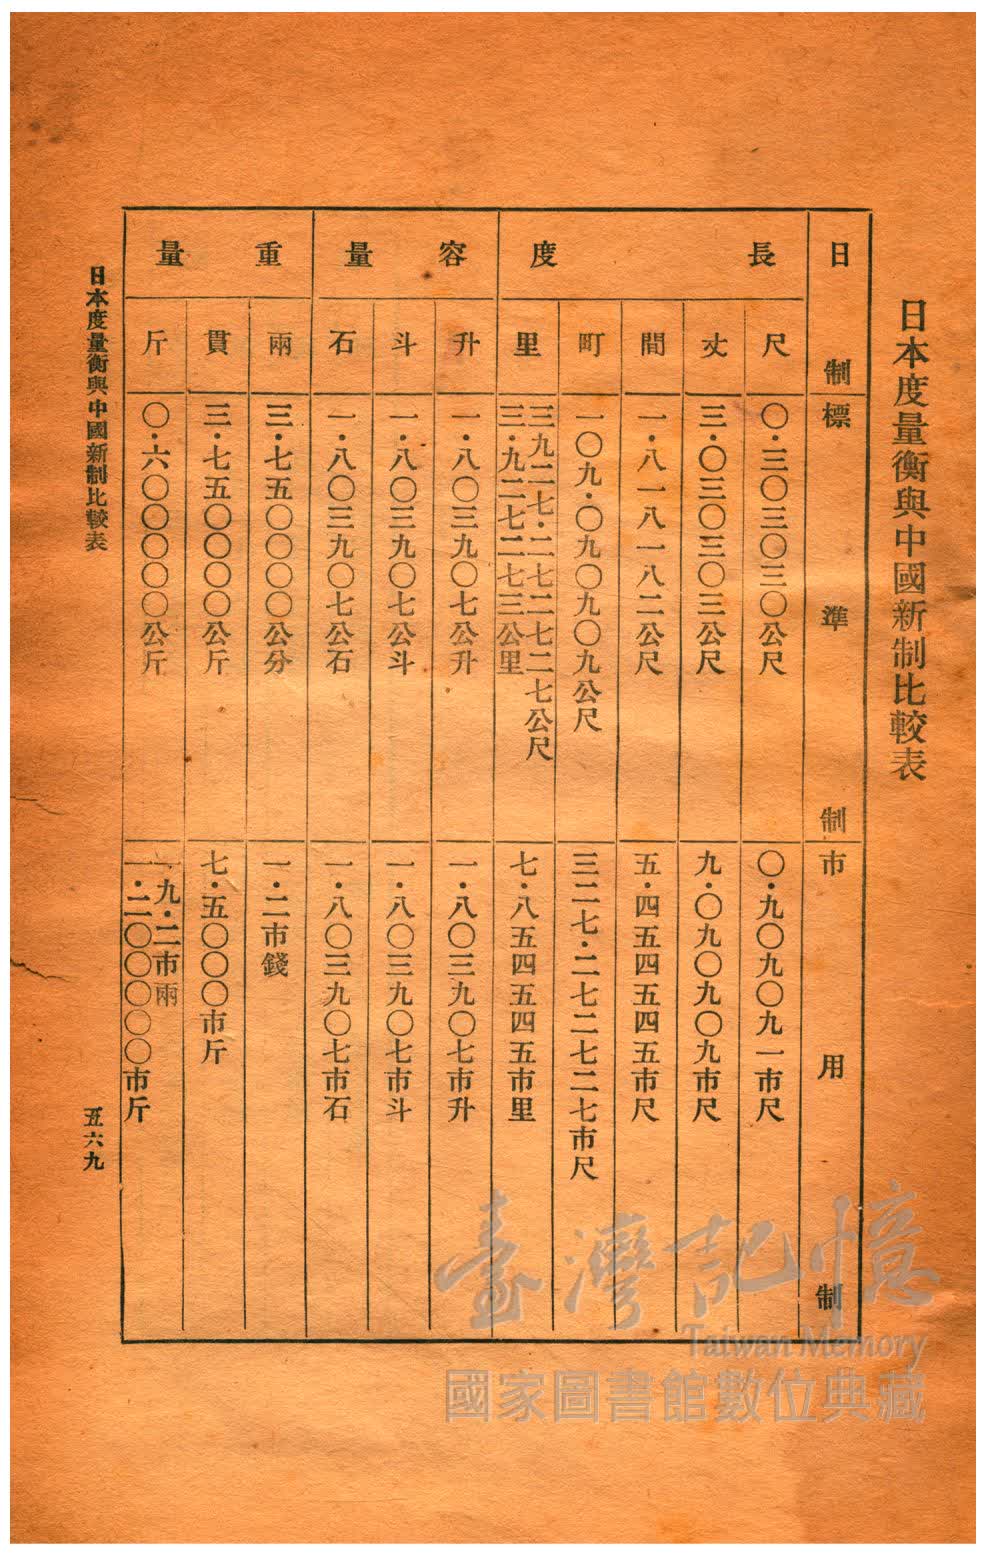 日本度量衡與中國新制比較表
日制
標準制
市用制
長度
尺
〇·三〇三〇三〇公尺
〇·九〇九〇九一市尺
丈
三·〇三〇三〇三公尺
九·〇九〇九〇九市尺
間
一·八一八一八二公尺
五·四五四五四五市尺
町
一〇九·〇九〇九〇九公尺
三二七·二七二七二七市尺
里
三九二七·二七二七二七公尺
三·九二七二七三公里
七·八五四五四五市里
容量
升
一·八〇三九〇七公升
一·八〇三九〇七市升
斗
一·八〇三九〇七公斗
一·八〇三九〇七市斗
石
一·八〇三九〇七公石
一·八〇三九〇七市石
重量
兩
三·七五〇〇〇〇公分
一·二市錢
貫
三·七五〇〇〇〇公斤
七·五〇〇〇市斤
斤
〇·六〇〇〇〇〇公斤
一九·二市兩
一·二〇〇〇〇〇市斤
日本度量衡與中國新制比較表
五六九
臺灣記憶
Taiwan Memory
國家圖書館數位典藏